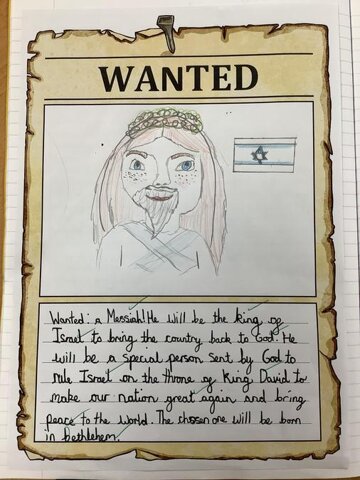 WANTED
Wanted: a Messiah! He will be the king of
Israel to bring the country back to God. He
will be a special person sent by God to
rule Israel on the throne of King David to
make our nation great again and bring
peace to the world. The chosen one will be born
in Bethlehem.